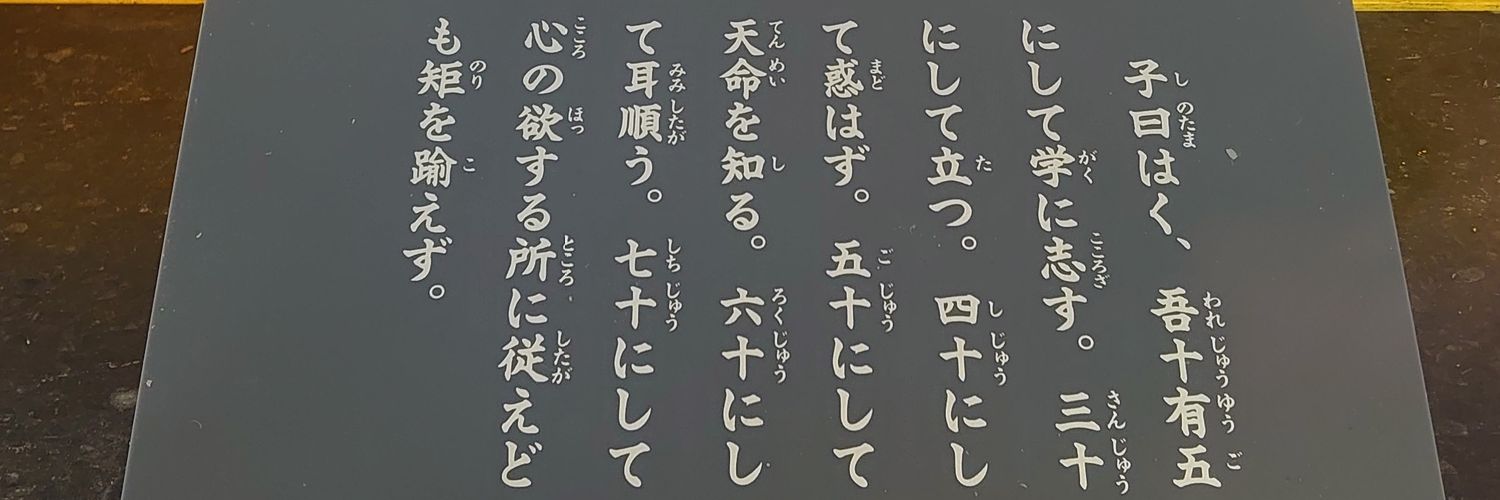 子曰はく、吾十有五
にして学に志す。三十
にして立つ。四十にし
て惑はず。五十にして
天命を知る。六十にし
て耳順う。七十にして
心の欲する所に従えど
も矩を踰えず。